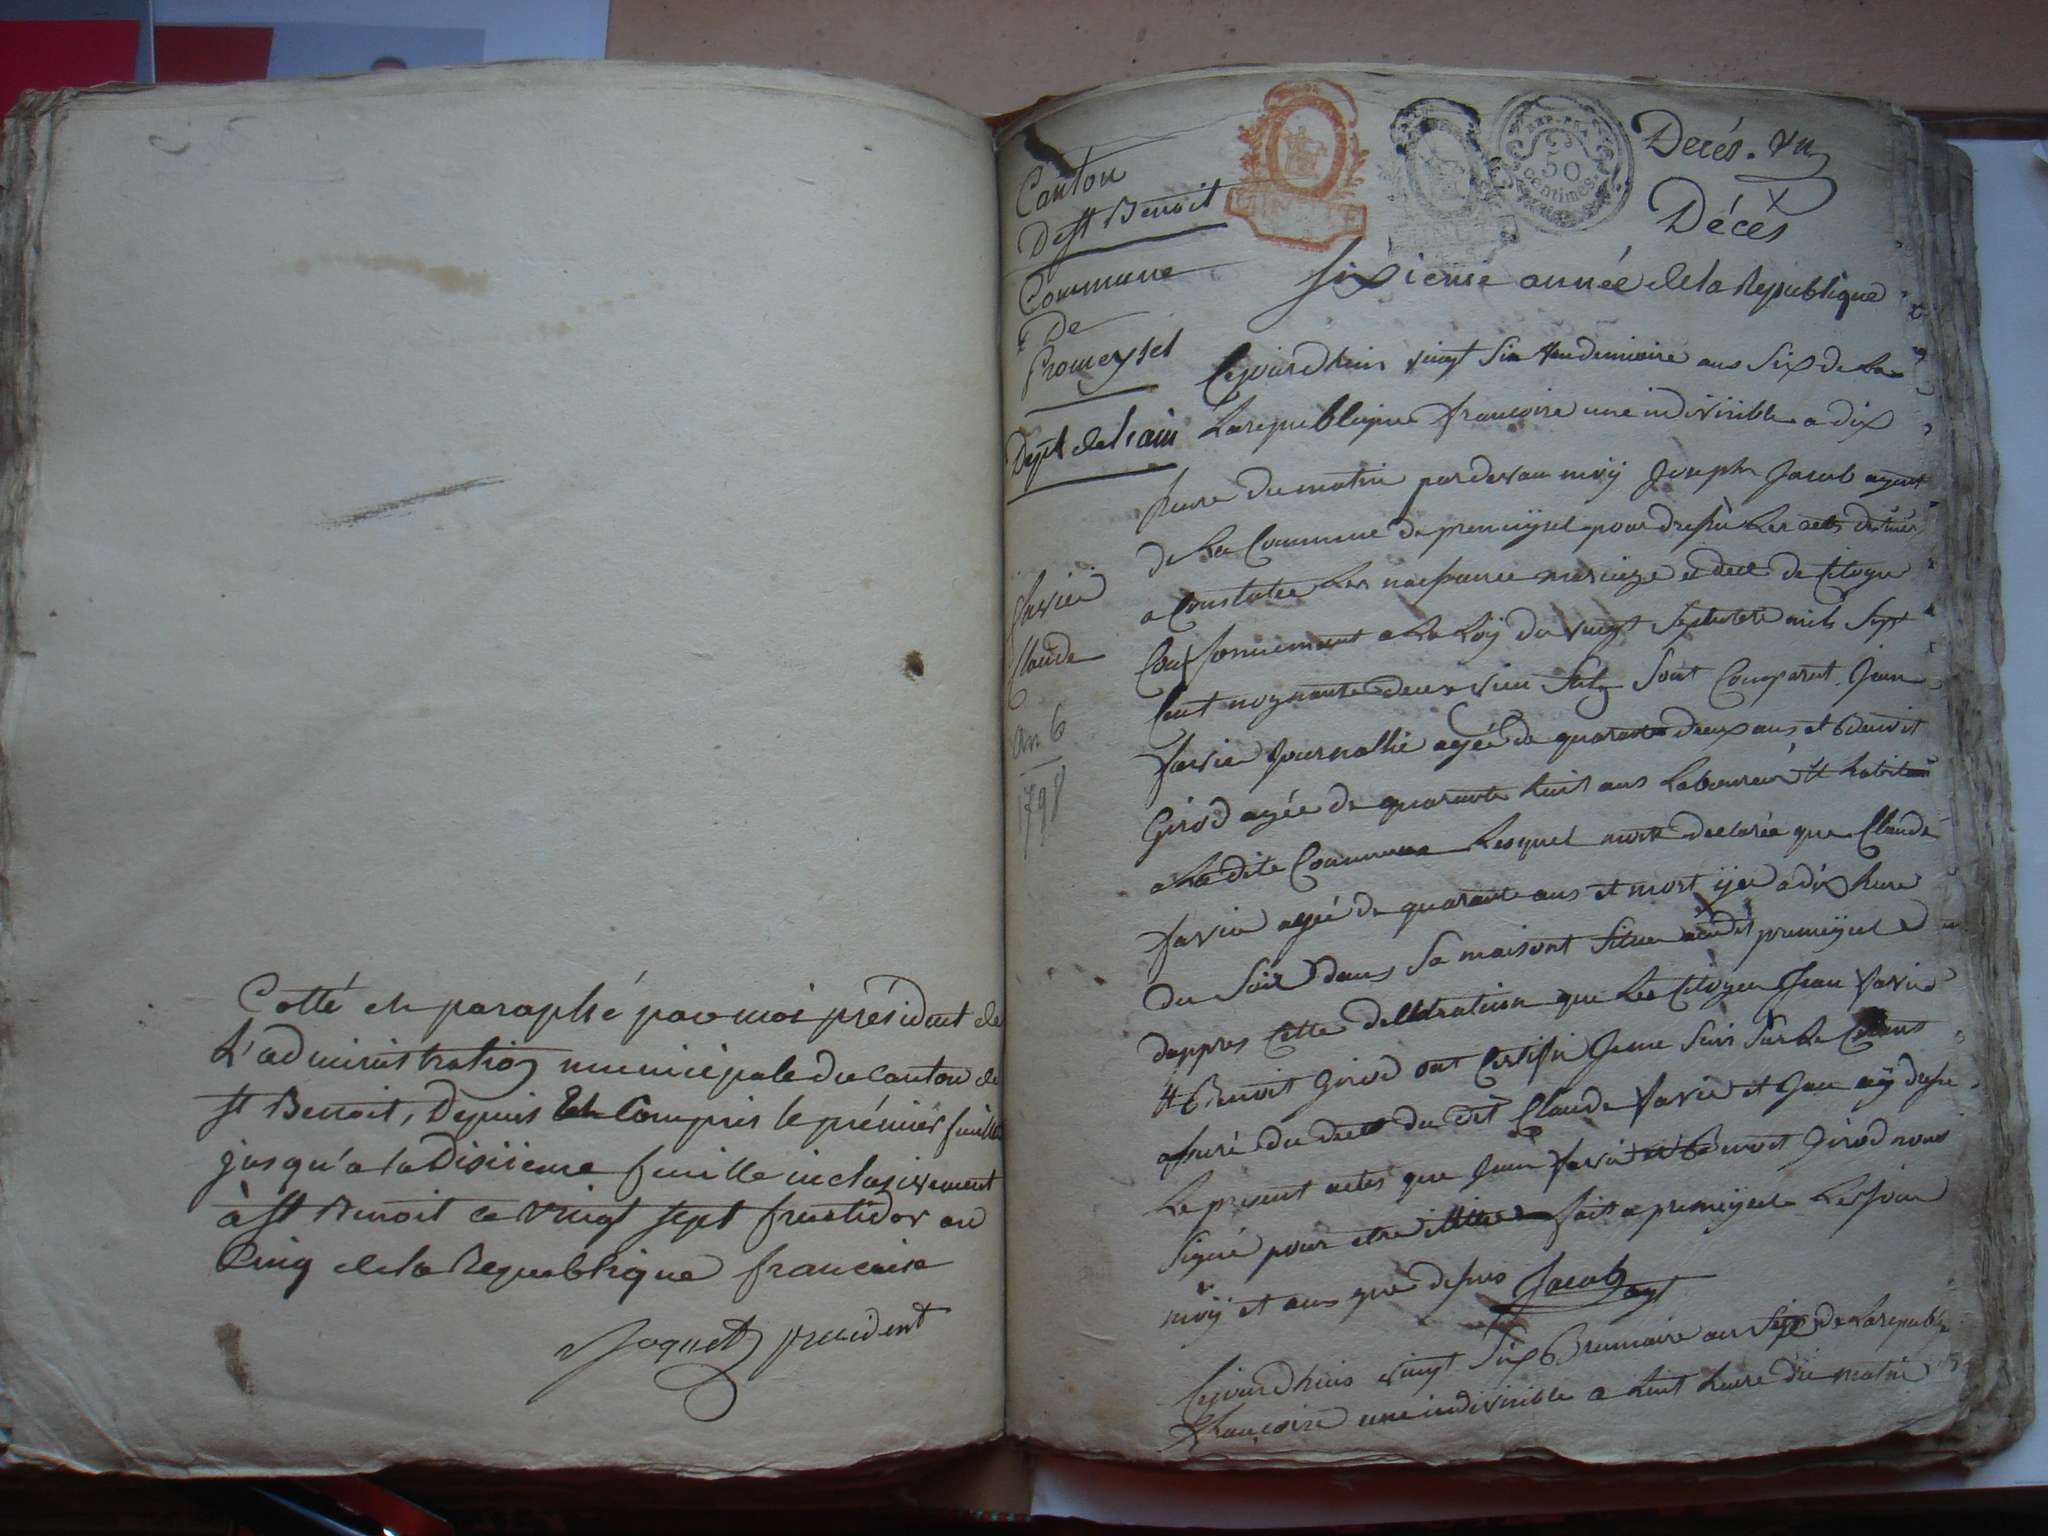 Cotté et paraphé par moi président de
L'administration municipale du Canton de
st Benoit, Depuis et Compris le prémier feuille
jusqu'a la Dixieme feuille inclusivement
à st Benoit ce vingt sept fructidor an
Cinq de la Republique francaise
président
Canton
De st Benoit
Commune
De
Promeysel
Dept de Lain
favier
Claude
an 6
1798
50
centimes
Decés. un
Décés
sixieme année de la Republique
Cejourdhuis vingt six vendemiaire ans six de La
Larepublique francoise une indivisible a dix
heure du matin pardevan moÿ Joseph Jacob agent
de La Commune de premeÿsel pour dresser Les acts
a Constatée Les naissance mariage et decé de Citoyen
Conformement a La Loÿ du vingt Septembre mils Sept
Cent nognante deux Sont Comparut Jean
favier Journallié agée de quarante deux ans et Benoit
Girod agée de quarante huit ans Laboureur
a La dite Commune Lesquel mont declarée que Claude
favier agée de quarante ans et mort ÿer a dix heure
du Soir dans Sa maisont Situe audit premeÿsel
dappres Cette dellaration que Les Citoyen Jean favier
et Benoit Girod ont Certifie Je me Suis Sur Le
assuré du decé du dit Claude favier et Jean aÿ dresse
Le present actes que Jean favier et Benoit Girod nons
Signé pour etre illiteré fait a premeÿsel Les Jour
moÿ et ans que desus Jacob agt
Cejourdhuis vingt Six Brumaire an Six de Larepubli
francoise une indivisible a huit heure du matin